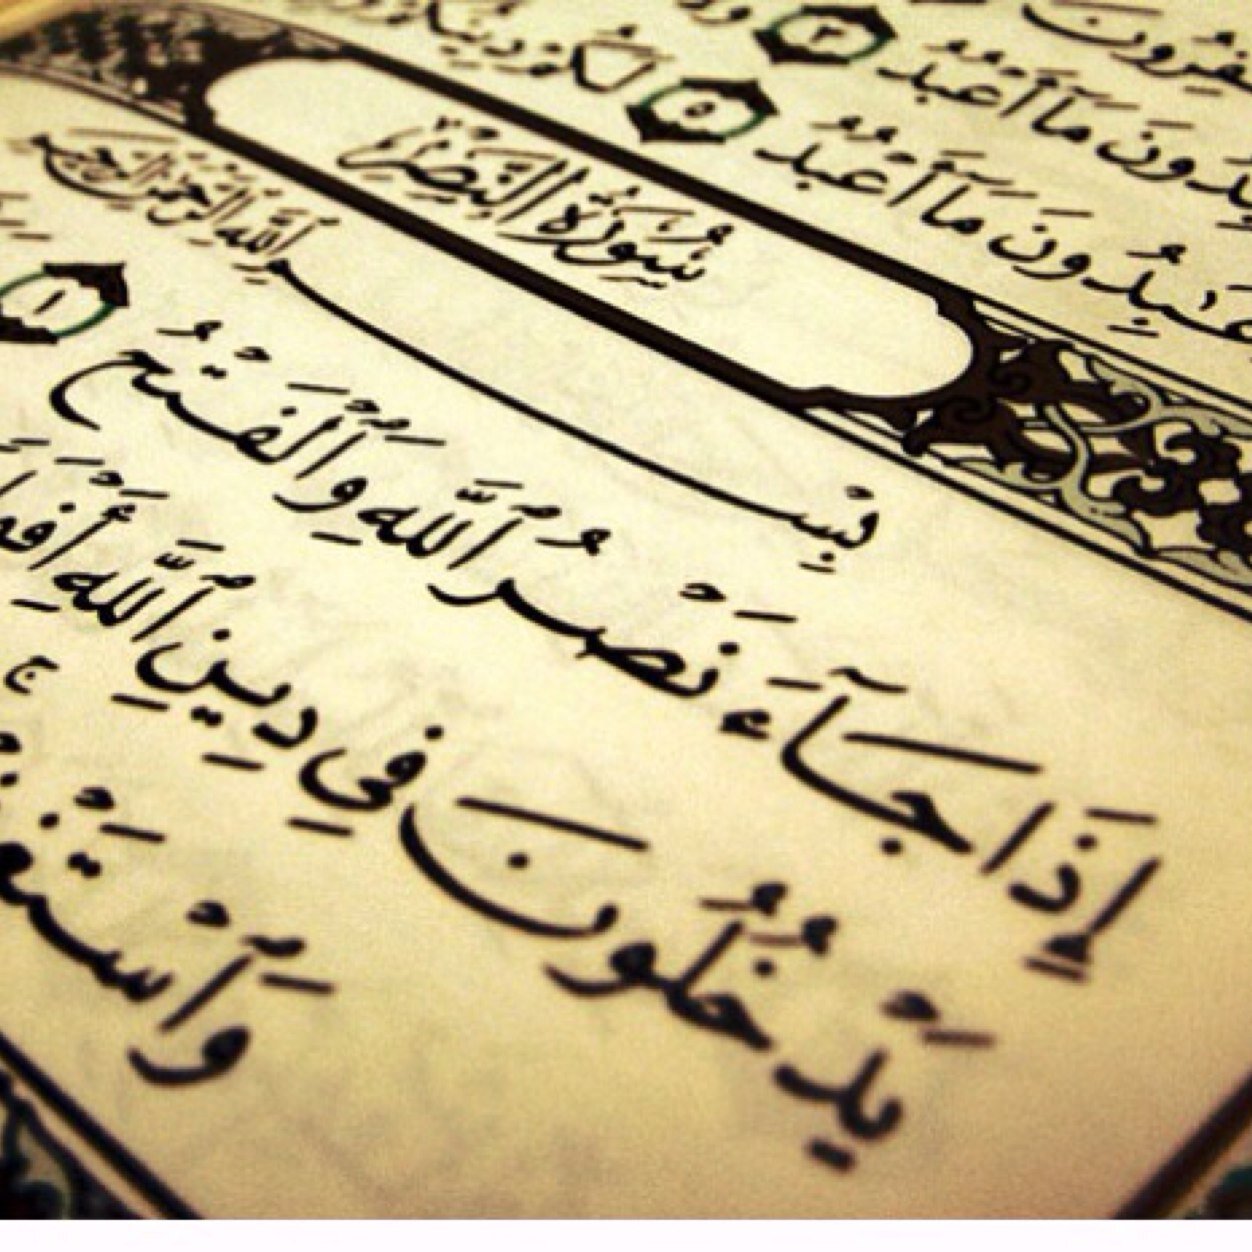 ـفِرُونَ
ـبُدُونَ مَآ أَعْبُدُ ٣
عَـٰبِدُونَ مَآ أَعْبُدُ ٥ لَكُمْ دِينُكُمْ
سُورَةُ النَّصْرِ
بِسْمِ ٱللَّهِ ٱلرَّحْمَـٰنِ ٱلرَّحِيمِ
إِذَا جَآءَ نَصْرُ ٱللَّهِ وَٱلْفَتْحُ ١
يَدْخُلُونَ فِي دِينِ ٱللَّهِ أَفْوَا
وَٱسْتَغْ